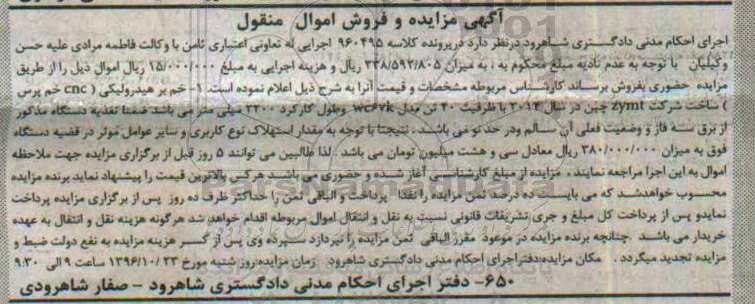 آگهی مزایده و فروش اموال منقول
اجرای احکام مدنی دادگستری شاهرود درنظر دارد درپرونده کلاسه ۹۶۰۴۹۵ اجرایی له تعاونی اعتباری ثامن با وکالت فاطمه مرادی علیه حسن
وکیلیان با توجه به عدم تادیه مبلغ محکوم به ، به میزان ۳۳۸/۵۹۳/۸۰۵ ریال و هزینه اجرایی به مبلغ ۱۵/۰۰۰/۰۰۰ ریال اموال ذیل را از طریق
مزایده حضوری بفروش برساند کارشناس مربوطه مشخصات و قیمت آنرا به شرح ذیل اعلام نموده است. ۱- خم بر هیدرولیکی ( cnc خم پرس
) ساخت شرکت zymt چین در سال ۲۰۱۳ با ظرفیت ۴۰ تن مدل wc67k وطول کارکرد ۲۲۰۰ میلی متر می باشد ضمنا تغذیه دستگاه مذکور
از برق سه فاز و وضعیت فعلی آن سالم ودر حد نو می باشد . نتیجتا با توجه به مقدار استهلاک نوع کاربری و سایر عوامل موثر در قضیه دستگاه
فوق به میزان ۳۸۰/۰۰۰/۰۰۰ ریال معادل سی و هشت میلیون تومان می باشد . لذا طالبین می توانند ۵ روز قبل از برگزاری مزایده جهت ملاحظه
اموال به این اجرا مراجعه نمایند . مزایده از مبلغ کارشناسی آغاز شده و حضوری می باشد هرکس بالاترین قیمت را پیشنهاد نماید برنده مزایده
محسوب خواهدشد که می بایست ده درصد ثمن مزایده را نقدا پرداخت و الباقی ثمن را حداکثر ظرف ده روز پس از برگزاری مزایده پرداخت
نمایدو پس از پرداخت کل مبلغ و جری تشریفات قانونی نسبت به نقل و انتقال اموال مربوطه اقدام خواهد شد هرگونه هزینه نقل و انتقال به عهده
خریدار می باشد .چنانچه برنده مزایده در موعود مقرر الباقی ثمن مزایده را نپردازد سپرده وی پس از کسر هزینه مزایده به نفع دولت ضبط و
مزایده تجدید میگردد . مکان مزایده:دفتراجرای احکام مدنی دادگستری شاهرود زمان مزایده:روز شنبه مورخ ۱۳۹۶/۱۰/۲۳ ساعت ۹ الی ۹:۳۰
۶۵۰- دفتر اجرای احکام مدنی دادگستری شاهرود - صفار شاهرودی